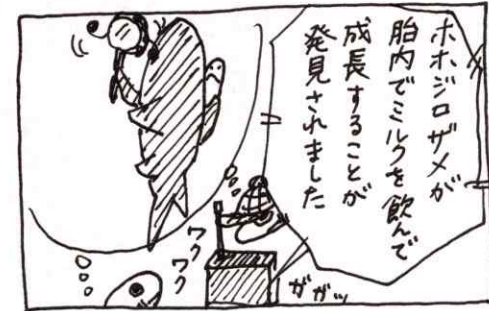 ホホジロザメが
胎内でミルクを飲んで
成長することが
発見されました
ワク
ワク
ガガッ